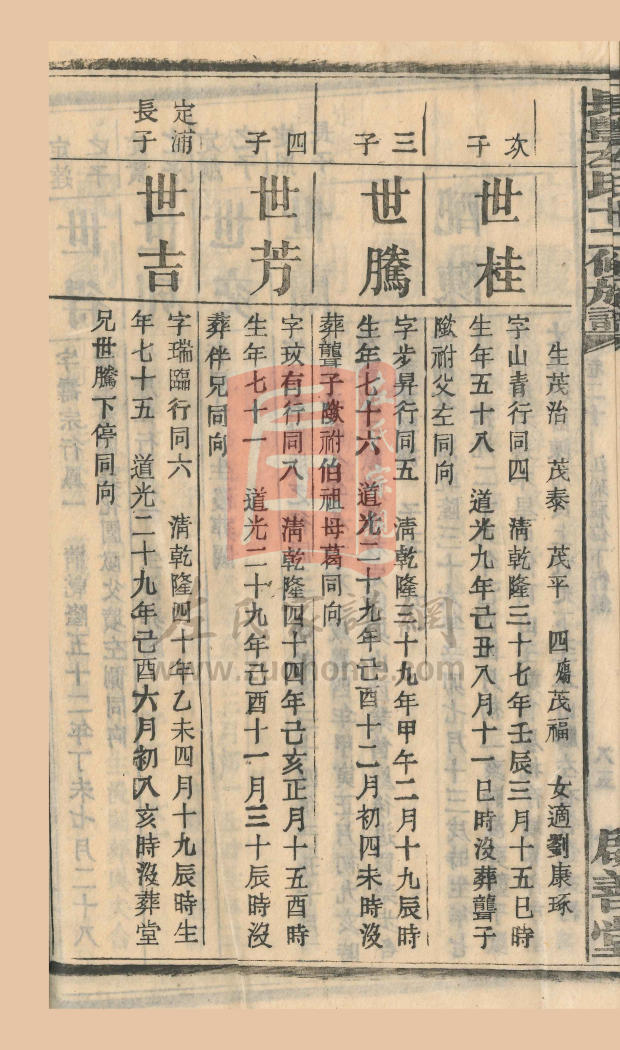 生茂治 茂泰 茂平 四殤茂福 女適劉康琢
次子 世桂
字山青行同四 清乾隆三十七年壬辰三月十五巳時
生年五十八 道光九年己丑八月十一巳時沒葬聾子
墩祔父左同向
三子 世騰
字步昇行同五 清乾隆三十九年甲午二月十九辰時
生年七十六 道光二十九年己酉十二月初四未時沒
葬聾子墩祔伯祖母葛同向
四子 世芳
字玟有行同八 清乾隆四十四年己亥正月十五酉時
生年七十一 道光二十九年己酉十一月三十辰時沒
葬伴兄同向
定浦長子 世吉
字瑞臨行同六 清乾隆四十年乙未四月十九辰時生
年七十五 道光二十九年己酉六月初八亥時沒葬堂
兄世騰下停同向
左氏家譜網
www.zuohome.com